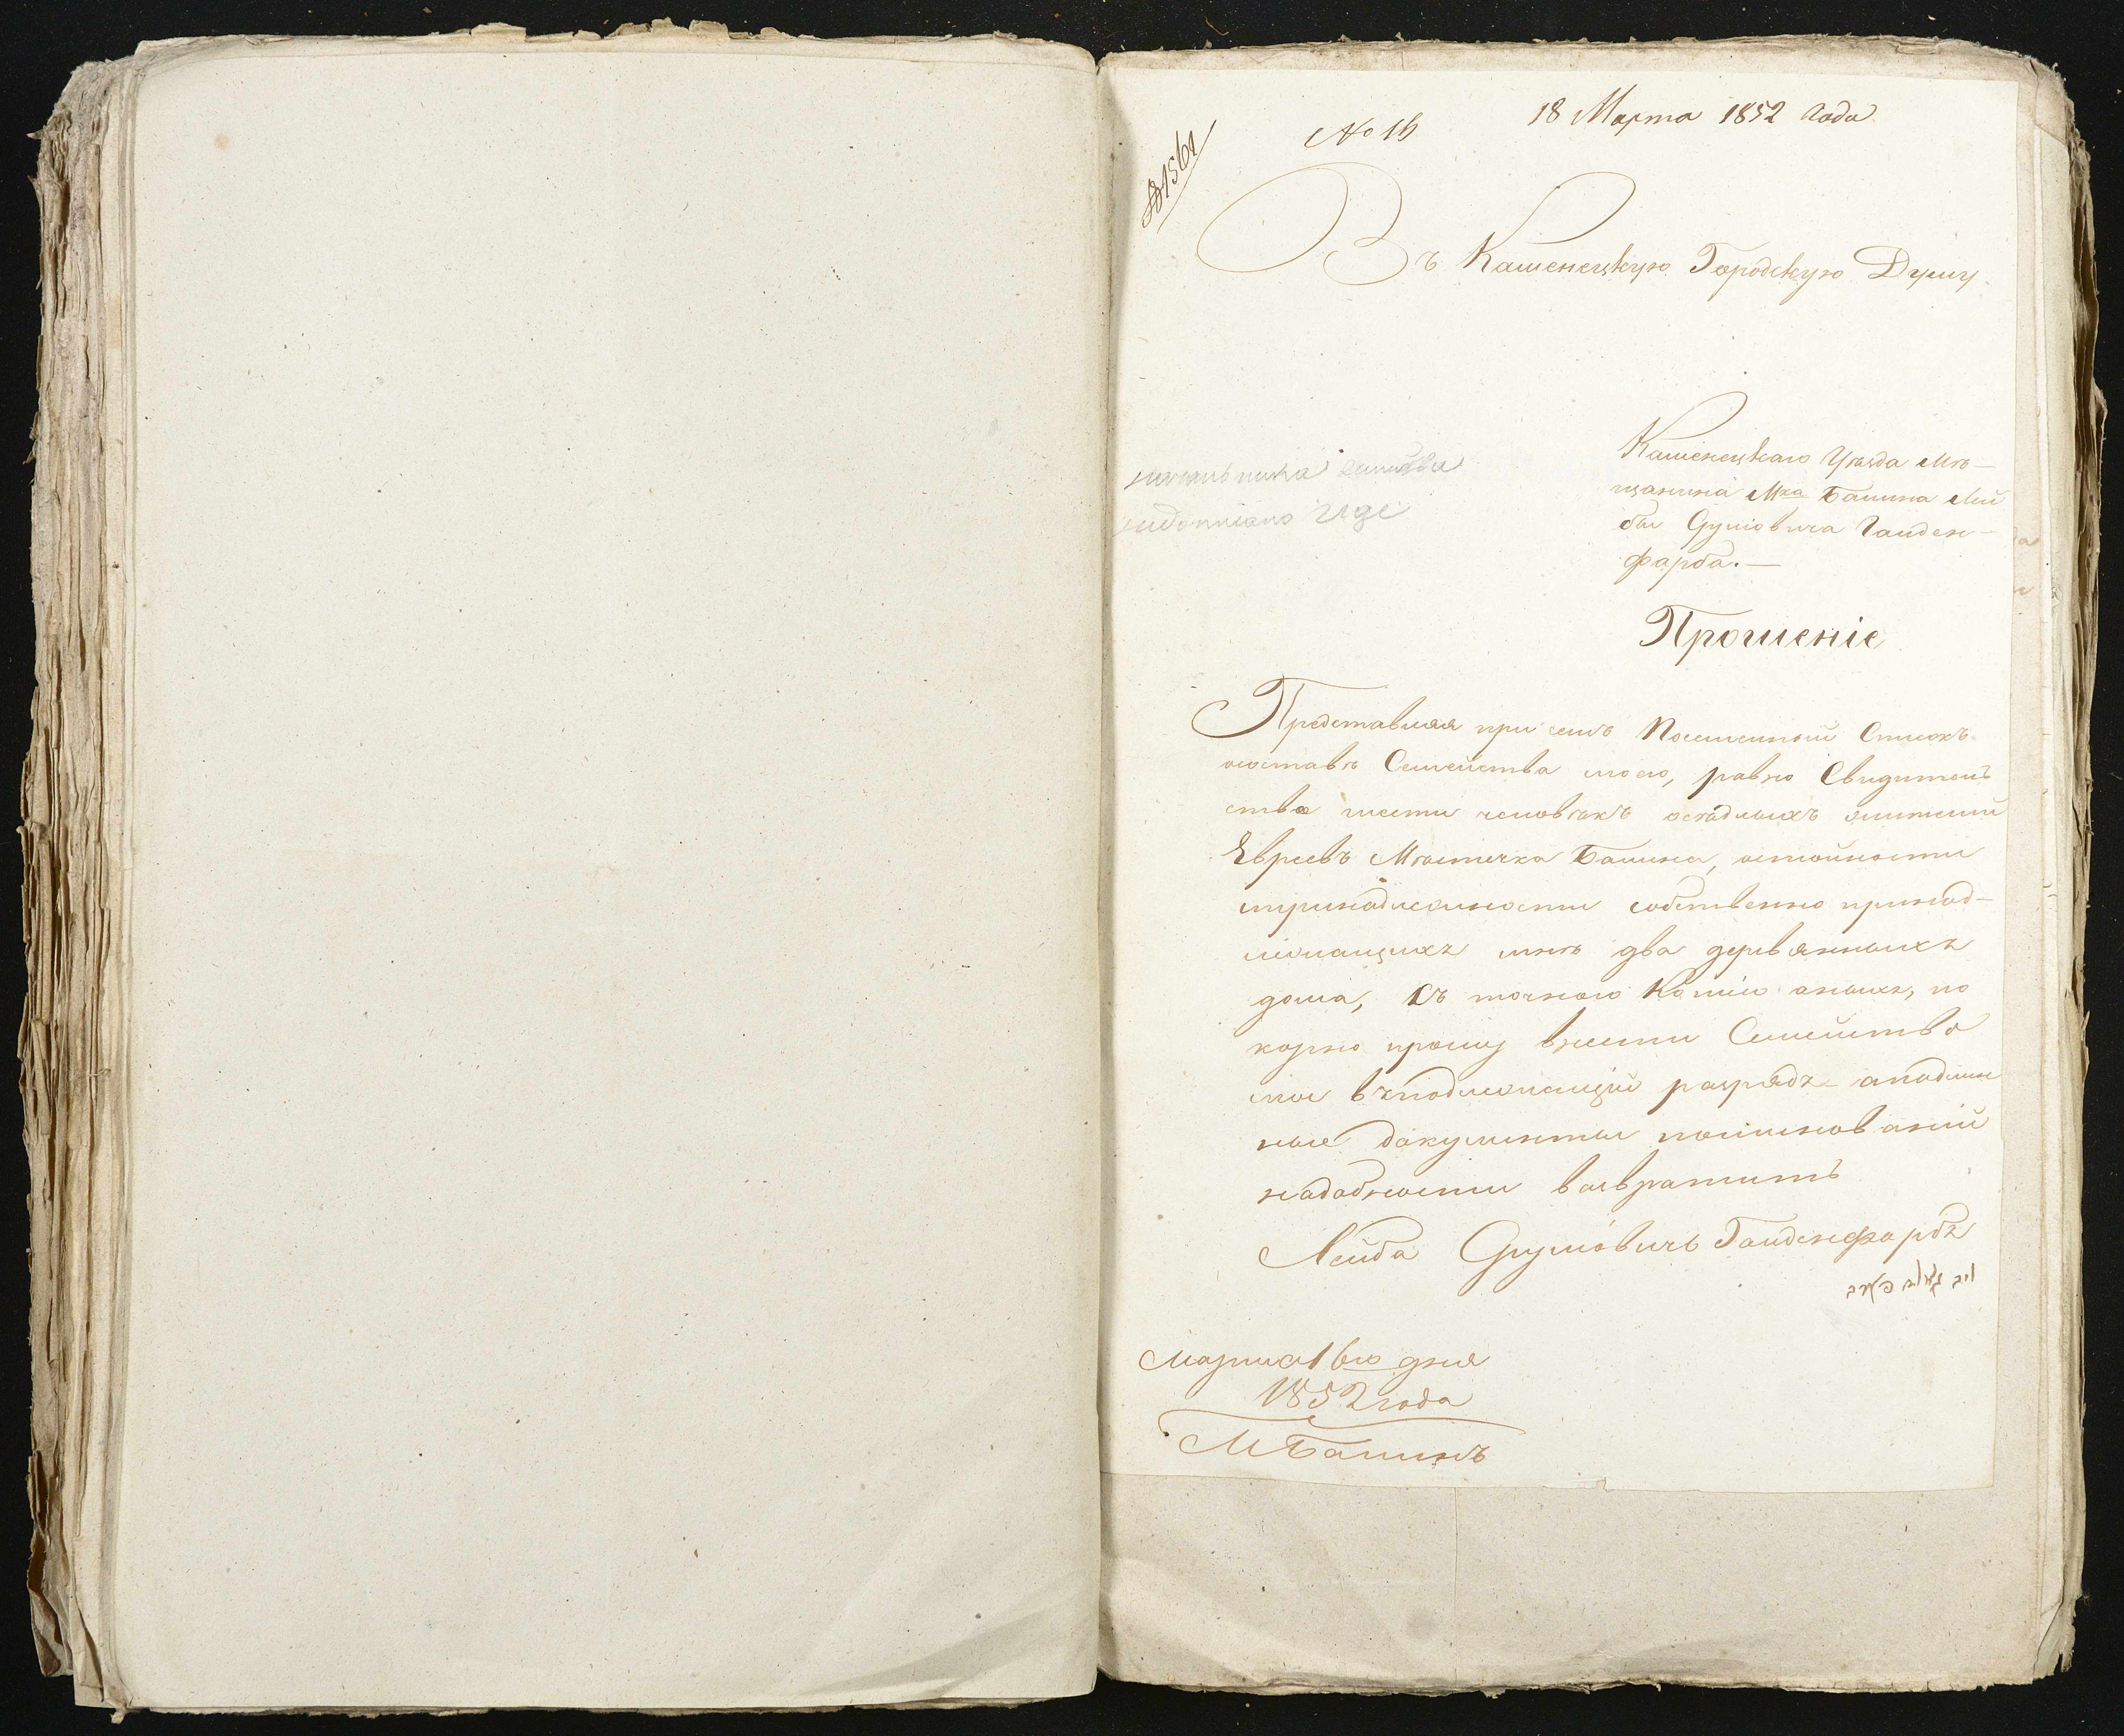 18 Марта 1852 Года
№ 16
Въ Каменецкую Городскую Думу
Каменецкаго Уѣзда мѣ-
щанина Мка Балина Лей
бы Сруліовича Гайден-
фарба.—
Прошеніе
Представляя при семъ Посемейный Списокъ
оставѣ Семейства моего, равно Свидѣтель
ство шести человѣкъ осѣдлыхъ жителей
Евреевъ Мѣстечка Балина, остоимости
ипринадлежности собственно принад-
лежащихъ мнѣ два деревянныхъ
дома, Съ точною Копіею оныхъ, по
корно прошу внести Семейство
мое вънодлежащій разрядъ аподлин
ные документы поминованіи
надобности возвратить
Лейба Сруліовичъ Гайденфарбъ
Марта 16го дня
1852 года
М Балинъ